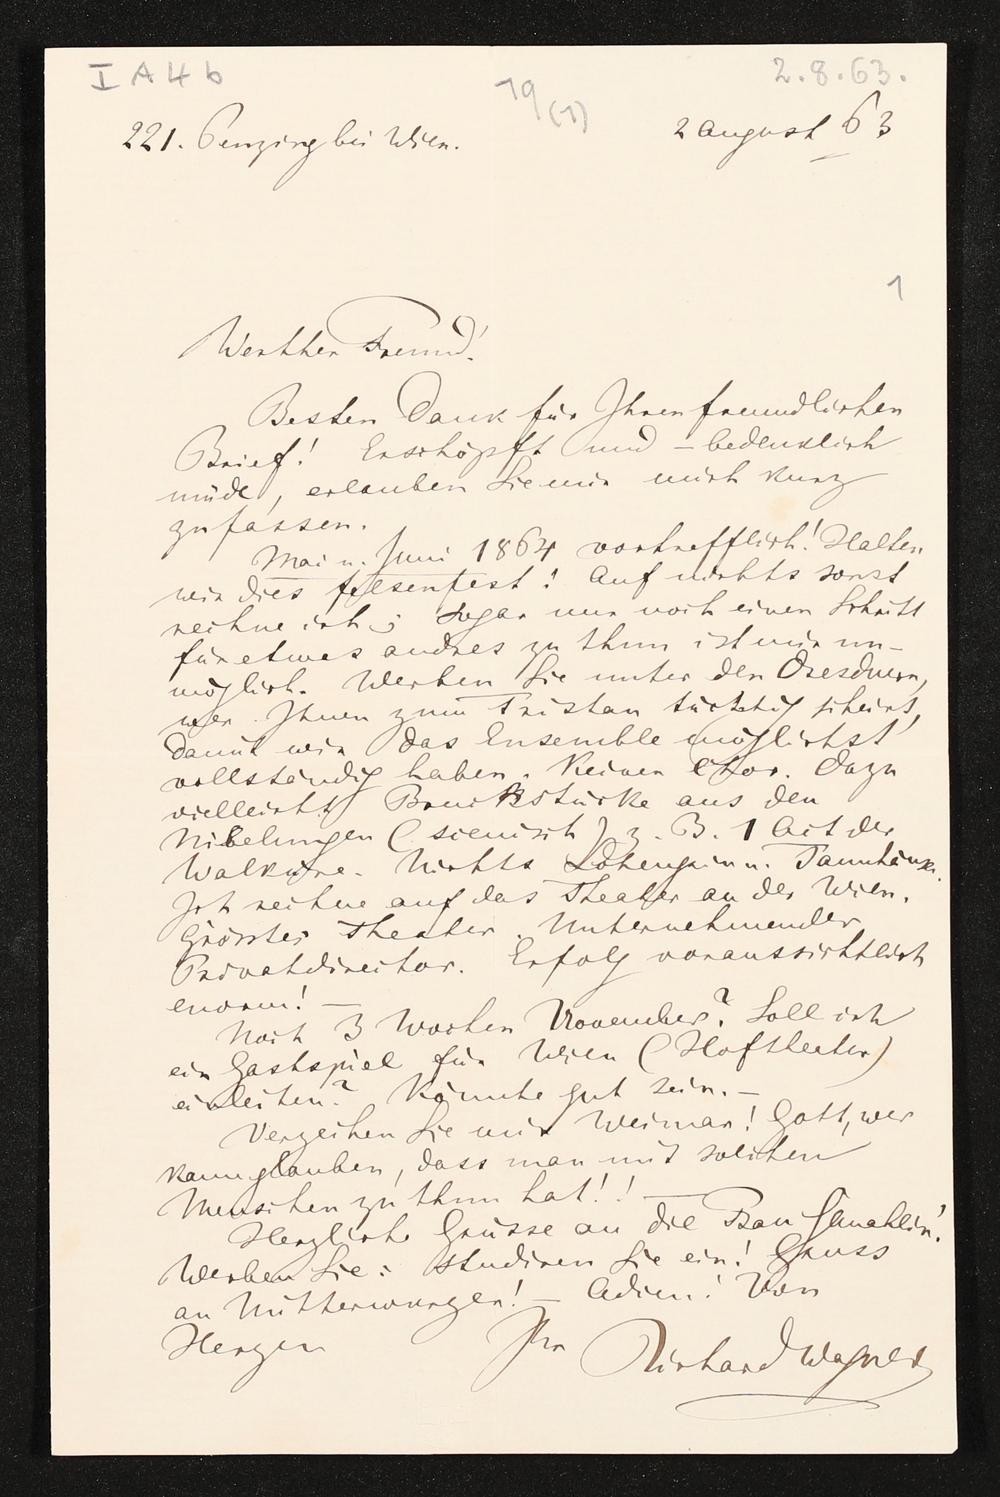 I A 4 b
19 (1)
2.8.63.
221. Penzing bei Wien.
2 august 63
1
Werther Freund!
Besten Dank für Ihren freundlichen
Brief! Erschöpft und – bedenklich
müde, erlauben Sie mir mich kurz
zu fassen.
Mai u. Juni 1864 vortrefflich! Halten
wir dies felsenfest! Auf nichts sonst
rechne ich; sogar nur noch einen Schritt
für etwas andres zu thun ist mir un-
möglich. Werben Sie unter den Dresdnern,
wer Ihnen zum Tristan tüchtig scheint,
damit wir das Ensemble möglichst
vollständig haben. Keinen Chor. Dazu
vielleicht Bruchstücke aus den
Nibelungen (scenisch) z. B. 1 Act der
Walküre. Nichts Lohengrin u. Tannhäuser.
Ich rechne auf das Theater an der Wien.
Grösstes Theater. Unternehmender
Privatdirector. Erfolg voraussichtlich
enorm! —
Noch 3 Wochen November? Soll ich
ein Gastspiel für Wien (Hoftheater)
einleiten? Könnte gut sein. —
Verzeihen Sie mir Weimar! Gott, wer
kann glauben, dass man mit solchen
Menschen zu thun hat!! —
Herzliche Grüsse an die Frau Gemahlin!
Werben Sie: studiren Sie ein! Gruss
an Mitterwurzer! — Adieu! Von
Herzen Ihr Richard Wagner